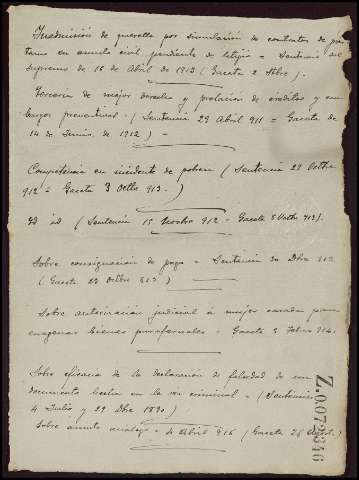 Inadmisión de querella por simulación de contratos de prés-
tamo en asunto civil pendiente de litigio = Sentencia del
supremo de 16 de Abril de 1913 (Gaceta 2 Stbre).
Tercería de mejor derecho y prelación de créditos y em-
bargo preventivo. (Sentencia 29 Abril 911 = Gaceta de
14 de Junio de 1912) =
Competencia en incidente de pobreza (Sentencia 29 Octbre
912 = Gaceta 3 Octbre 913.)
Id id (Sentencia 15 Novbre 912 = Gaceta 8 Octbre 913).
Sobre consignación de pago = Sentencia 30 Dbre 912
(Gaceta 23 Octbre 913)
Sobre autorización judicial a mujer casada para
enagenar bienes parafernales = Gaceta 3 Febro 914.
Sobre eficacia de la declaración de falsedad de un
documento hecha en la vía criminal = (Sentencias
4 Julio y 29 Dbre 1890.)
Sobre asunto análogo = 4 Abril 916 (Gaceta 26 Agost.)
Z.0072346